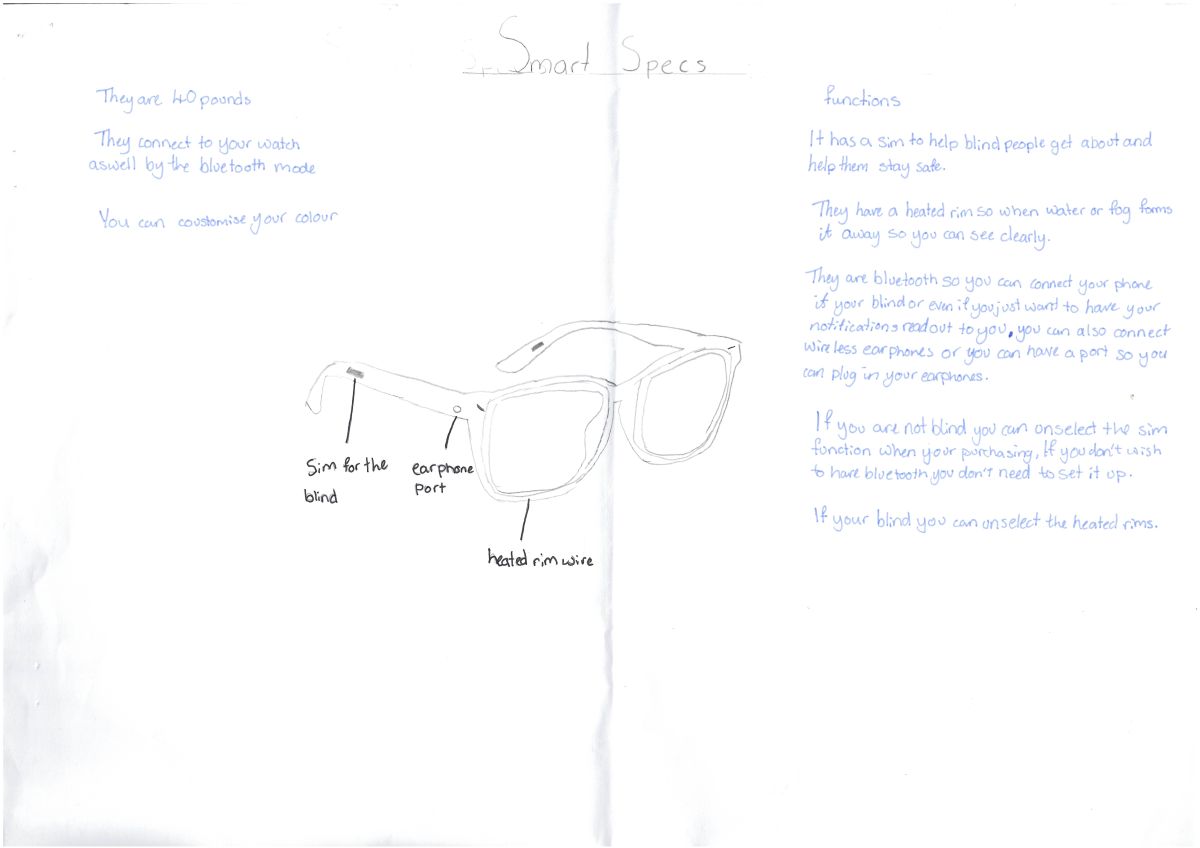 Smart Specs
They are 40 pounds
They connect to your watch
aswell by the bluetooth mode
You can coustomise your colour
functions
It has a sim to help blind people get about and
help them stay safe.
They have a heated rim so when water or fog forms
it away so you can see clearly.
They are bluetooth so you can connect your phone
if your blind or even if you just want to have your
notifications read out to you, you can also connect
wireless earphones or you can have a port so you
can plug in your earphones.
If you are not blind you can onselect the sim
function when your purchasing, If you don't wish
to have bluetooth you don't need to set it up.
If your blind you can onselect the heated rims.
Sim for the
blind
earphone
port
heated rim wire